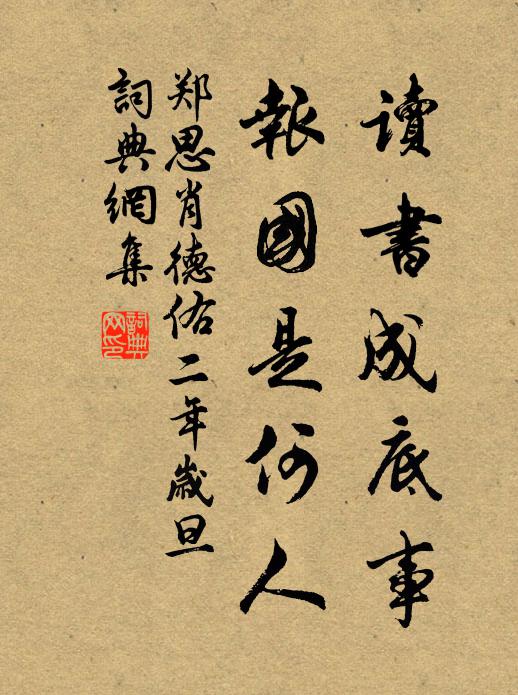 讀書成底事
報國是何人
郑思肖德佑二年歲旦
詞典網集
詞典網印